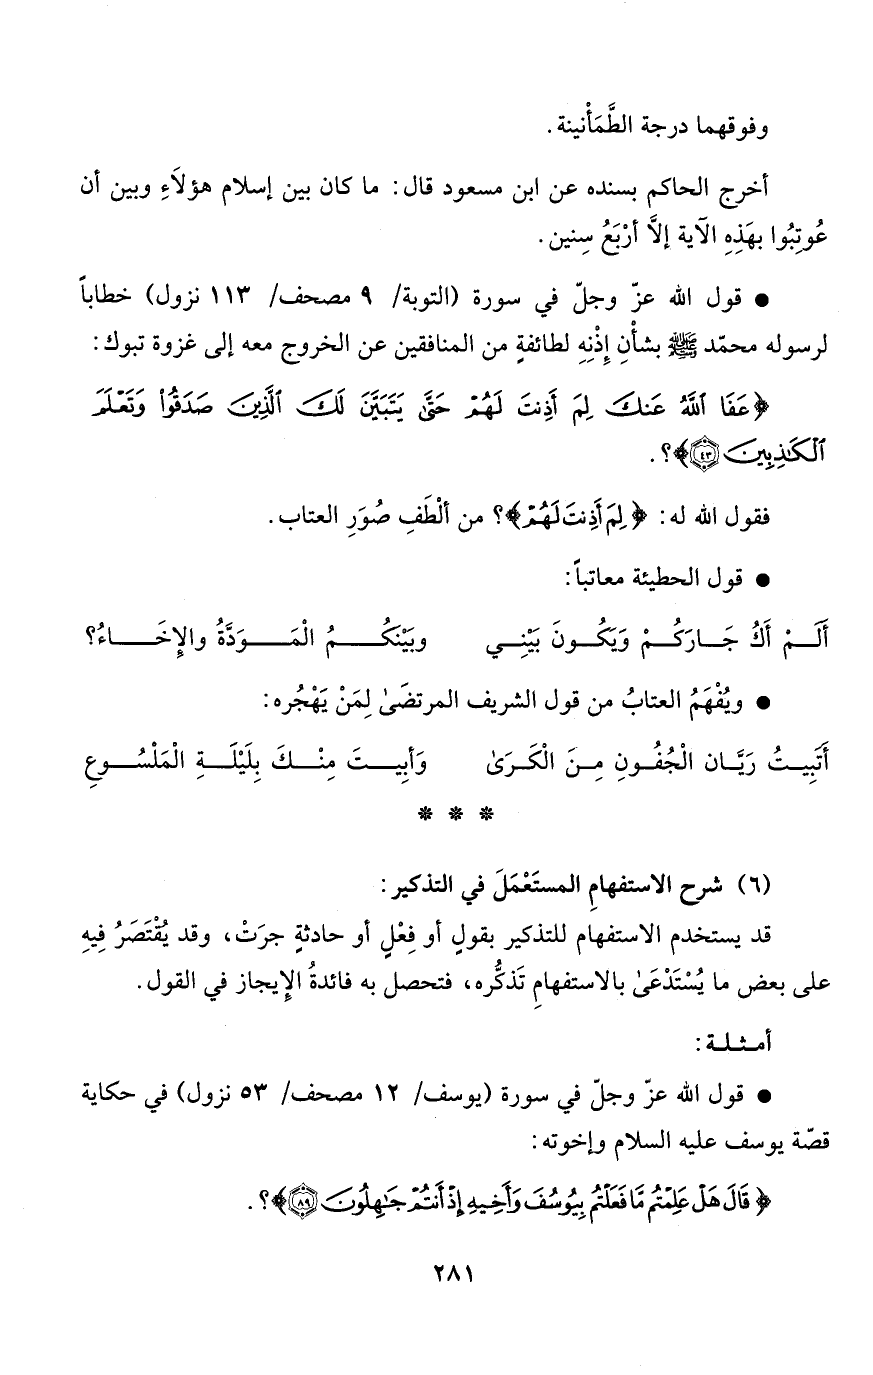 وفوقهما درجة الطَّمَأْنينة.
أخرج الحاكم بسنده عن ابن مسعود قال: ما كان بين إسلام هؤلَاءِ وبين أن
عُوتِبُوا بهَذِهِ الآية إلاَّ أرْبَعُ سِنين.
● قول الله عزّ وجلّ في سورة (التوبة/ ٩ مصحف/ ١١٣ نزول) خطاباً
لرسوله محمّد ﷺ بشأْنِ إِذْنِهِ لطائفةٍ من المنافقين عن الخروج معه إلى غزوة تبوك:
﴿عَفَا ٱللَّهُ عَنكَ لِمَ أَذِنتَ لَهُمْ حَتَّىٰ يَتَبَيَّنَ لَكَ ٱلَّذِينَ صَدَقُوا۟ وَتَعْلَمَ
ٱلْكَـٰذِبِينَ ﴿٤٣﴾﴾؟.
فقول الله له: ﴿لِمَ أَذِنتَ لَهُمْ﴾؟ من ألْطَفِ صُوَرِ العتاب.
● قول الحطيئة معاتباً:
أَلَــمْ أَكُ جَــارَكُــمْ وَيَكُــونَ بَيْنِــي وبَيْنَكُــــمُ الْمَــــوَدَّةُ والإِخَــــاءُ؟
● ويُفْهَمُ العتابُ من قول الشريف المرتضَىٰ لِمَنْ يَهْجُره:
أَتَبِيــتُ رَيَّــان الْجُفُــونِ مِــنَ الْكَــرَىٰ وَأبِيــــتَ مِنْــــكَ بِلَيْلَــــةِ الْمَلْسُــــوعِ
* * *
(٦) شرح الاستفهامِ المستَعْمَلَ في التذكير:
قد يستخدم الاستفهام للتذكير بقولٍ أو فِعْلٍ أو حادثةٍ جرَتْ، وقد يُقْتَصَرُ فِيهِ
على بعض ما يُسْتَدْعَىٰ بالاستفهامِ تَذكُّره، فتحصل به فائدةُ الإِيجاز في القول.
أمثـلـة:
● قول الله عزّ وجلّ في سورة (يوسف/ ١٢ مصحف/ ٥٣ نزول) في حكاية
قصّة يوسف عليه السلام وإخوته:
﴿قَالَ هَلْ عَلِمْتُم مَّا فَعَلْتُم بِيُوسُفَ وَأَخِيهِ إِذْ أَنتُمْ جَـٰهِلُونَ ﴿٨٩﴾﴾؟.
٢٨١